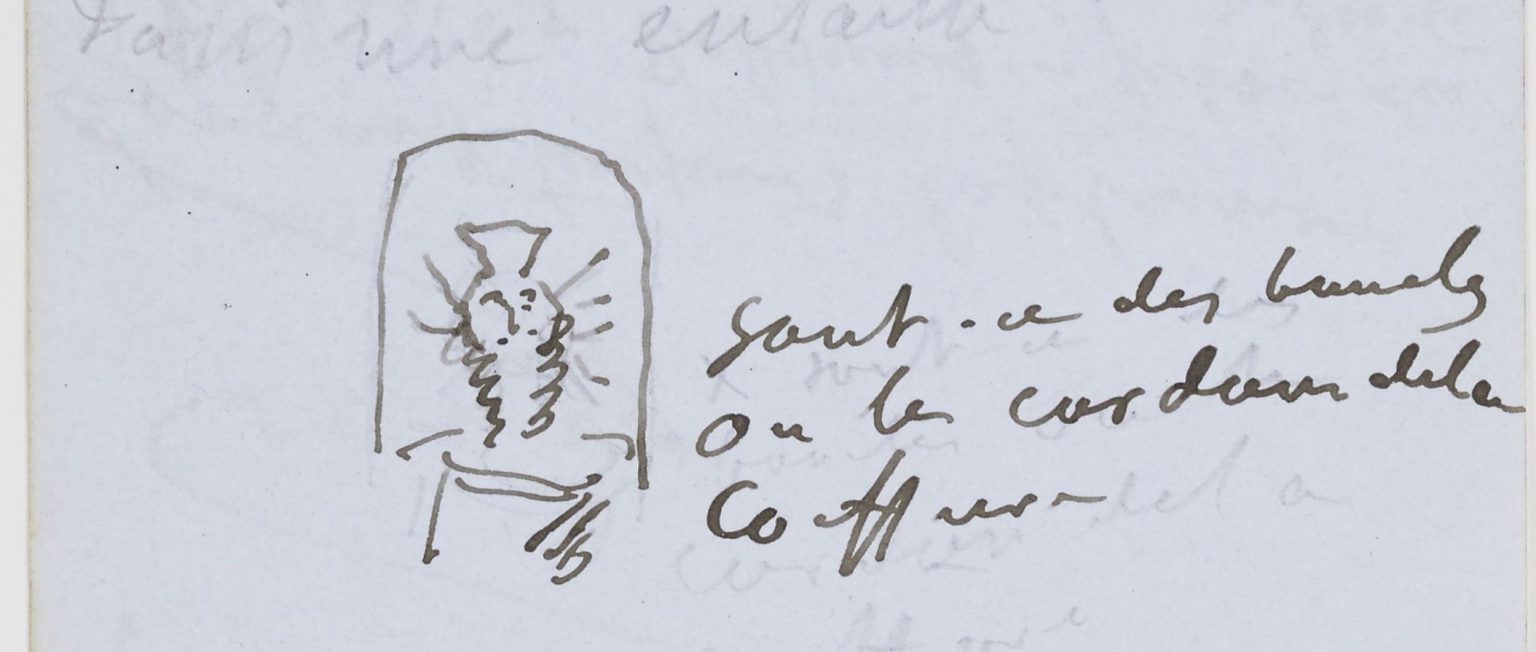 dans une entaille
sont-ce des boucles
ou les cordons de la
coiffure